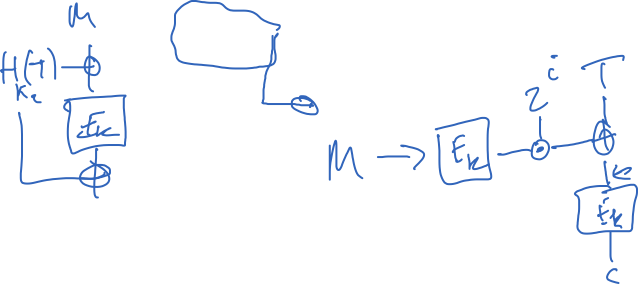 M
H(T)
K₂
E_K
M → E_K
2 i T
K
E_K
C